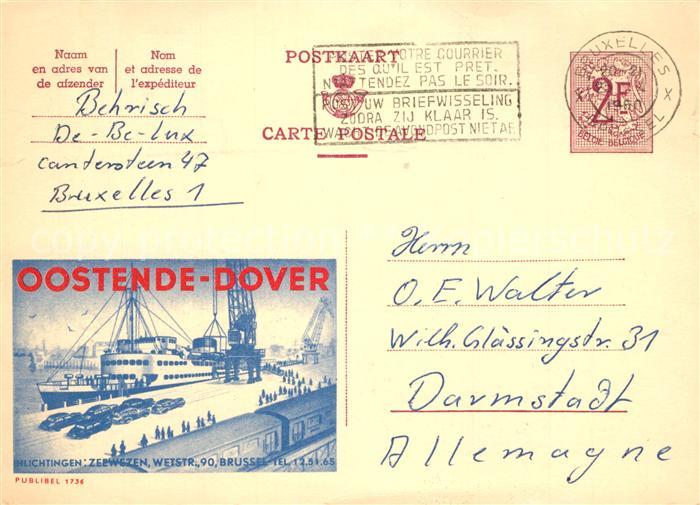 Naam
en adres van
de afzender
Nom
et adresse de
l'expéditeur
Behrisch
De-Be-Lux
Cantersteen 47
Bruxelles 1
POSTKAART
CARTE POSTALE
VOTRE COURRIER
DES QU'IL EST PRET.
N'ATTENDEZ PAS LE SOIR.
POST UW BRIEFWISSELING
ZODRA ZIJ KLAAR IS.
WACHT DE AVONDPOST NIET AF.
BRUXELLES X
2F
BELGIE-BELGIQUE
OOSTENDE-DOVER
INLICHTINGEN: ZEEWEZEN, WETSTR., 90, BRUSSEL TEL. 12.51.65
PUBLIBEL 1736
Herrn
O. E. Walter
Wilh. Glässingstr. 31
Darmstadt
Allemagne